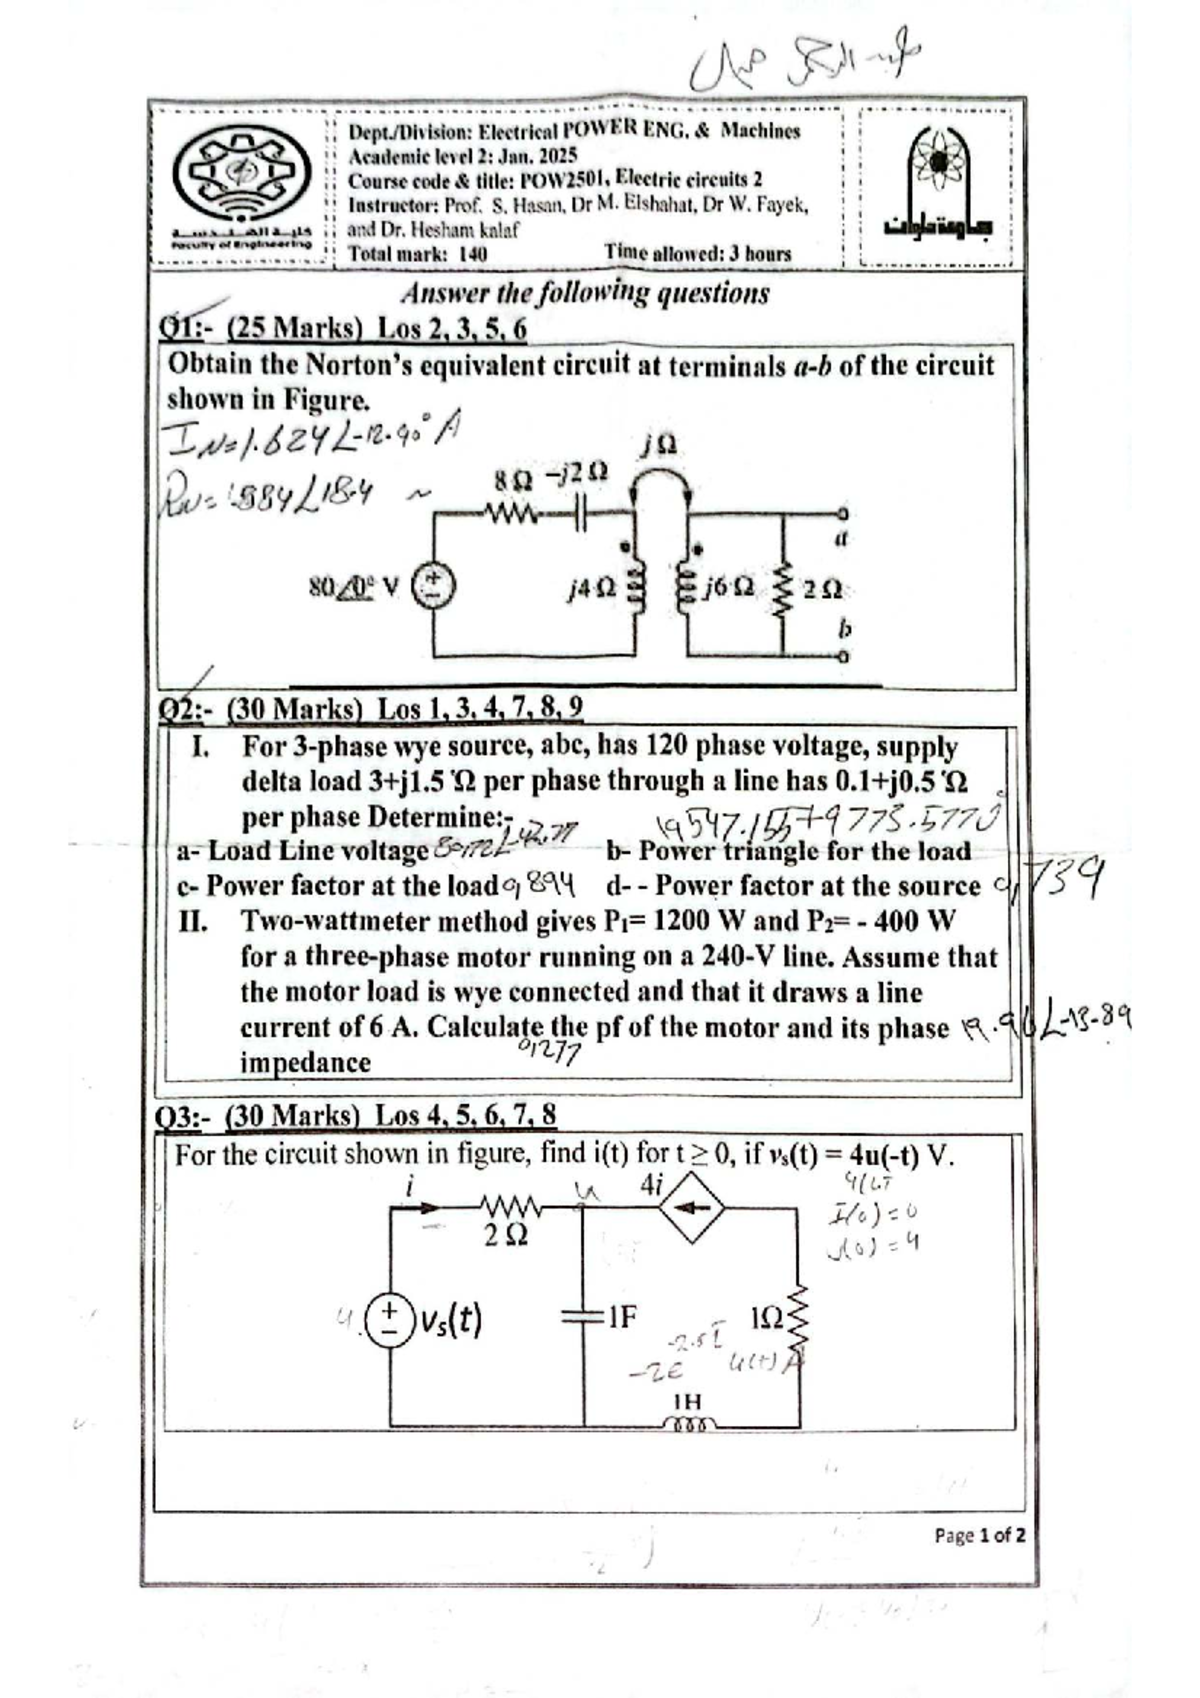 Dept./Division: Electrical POWER ENG. & Machines
Academic level 2: Jan. 2025
Course code & title: POW2501, Electric circuits 2
Instructor: Prof. S. Hasan, Dr M. Elshahat, Dr W. Fayek,
and Dr. Hesham kalaf
Total mark: 140 Time allowed: 3 hours
كلية الهندسة
Faculty of Engineering
جامعة حلوان
Answer the following questions
Q1:- (25 Marks) Los 2, 3, 5, 6
Obtain the Norton's equivalent circuit at terminals a-b of the circuit
shown in Figure.
IN=1.624∠-12.90° A
jΩ
8 Ω -j2 Ω
a
80∠0° V
+
−
j4 Ω
j6 Ω
2 Ω
b
Q2:- (30 Marks) Los 1, 3, 4, 7, 8, 9
I. For 3-phase wye source, abc, has 120 phase voltage, supply
delta load 3+j1.5 Ω per phase through a line has 0.1+j0.5 Ω
per phase Determine:-
19547.155+9773.577j
a- Load Line voltage b- Power triangle for the load
c- Power factor at the load 0,894 d- - Power factor at the source 0,739
II. Two-wattmeter method gives P1= 1200 W and P2= - 400 W
for a three-phase motor running on a 240-V line. Assume that
the motor load is wye connected and that it draws a line
current of 6 A. Calculate the pf of the motor and its phase
impedance
0,277
Q3:- (30 Marks) Los 4, 5, 6, 7, 8
For the circuit shown in figure, find i(t) for t ≥ 0, if vs(t) = 4u(-t) V.
i
4i
2 Ω
I(0) = 0
v(0) = 4
4
+
−
vs(t)
1F
1Ω
1H
Page 1 of 2